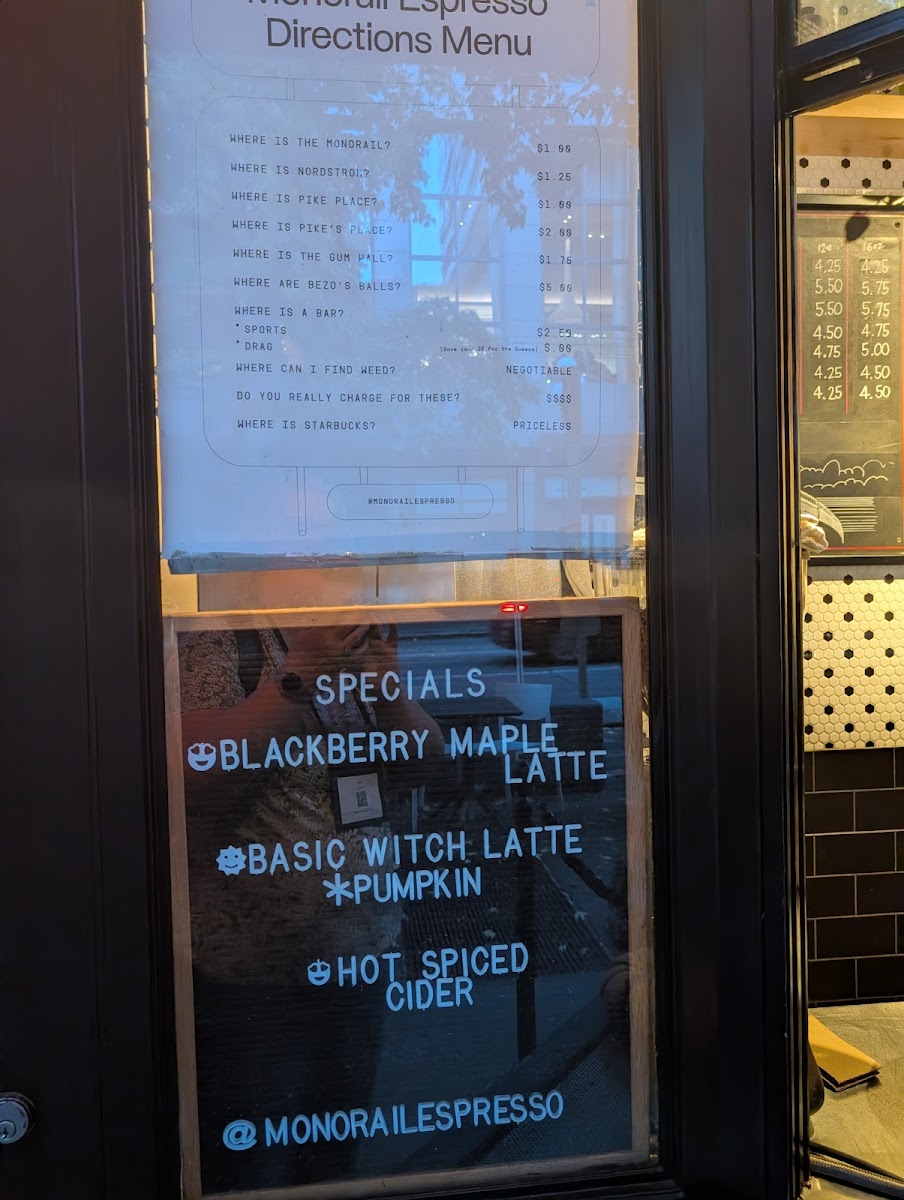 Monorail Espresso
Directions Menu
WHERE IS THE MONORAIL? $1.00
WHERE IS NORDSTROM? $1.25
WHERE IS PIKE PLACE? $1.00
WHERE IS PIKE'S PLACE? $2.00
WHERE IS THE GUM WALL? $1.75
WHERE ARE BEZO'S BALLS? $5.00
WHERE IS A BAR?
* SPORTS $2.50
* DRAG (Save your $$ for the Queens) $.00
WHERE CAN I FIND WEED? NEGOTIABLE
DO YOU REALLY CHARGE FOR THESE? $$$$
WHERE IS STARBUCKS? PRICELESS
@MONORAILESPRESSO
SPECIALS
BLACKBERRY MAPLE
LATTE
BASIC WITCH LATTE
*PUMPKIN
HOT SPICED
CIDER
@MONORAILESPRESSO
12oz 16oz
4.25 4.25
5.50 5.75
5.50 5.75
4.50 4.75
4.75 5.00
4.25 4.50
4.25 4.50